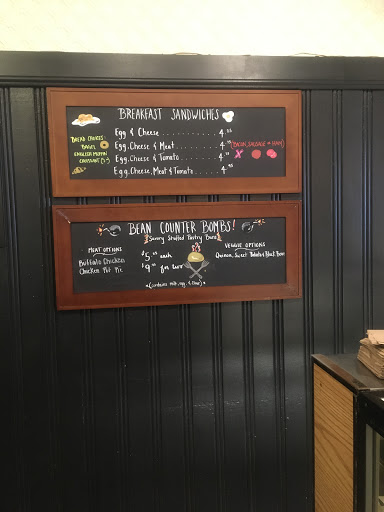 BREAKFAST SANDWICHES
BREAD CHOICES:
BAGEL
ENGLISH MUFFIN
CROISSANT
Egg & Cheese . . . . . . . . . . 4.
Egg, Cheese & Meat . . . . . . 4. (BACON, SAUSAGE or HAM)
Egg, Cheese & Tomato . . . . . 4.
Egg, Cheese, Meat & Tomato . . 4.
BEAN COUNTER BOMBS!
Savory Stuffed Pastry Buns
MEAT OPTIONS
Buffalo Chicken
Chicken Pot Pie
$5. each
$9. for two
VEGGIE OPTIONS
Quinoa, Sweet Potato & Black Bean
*(contains milk, egg, & flour)*